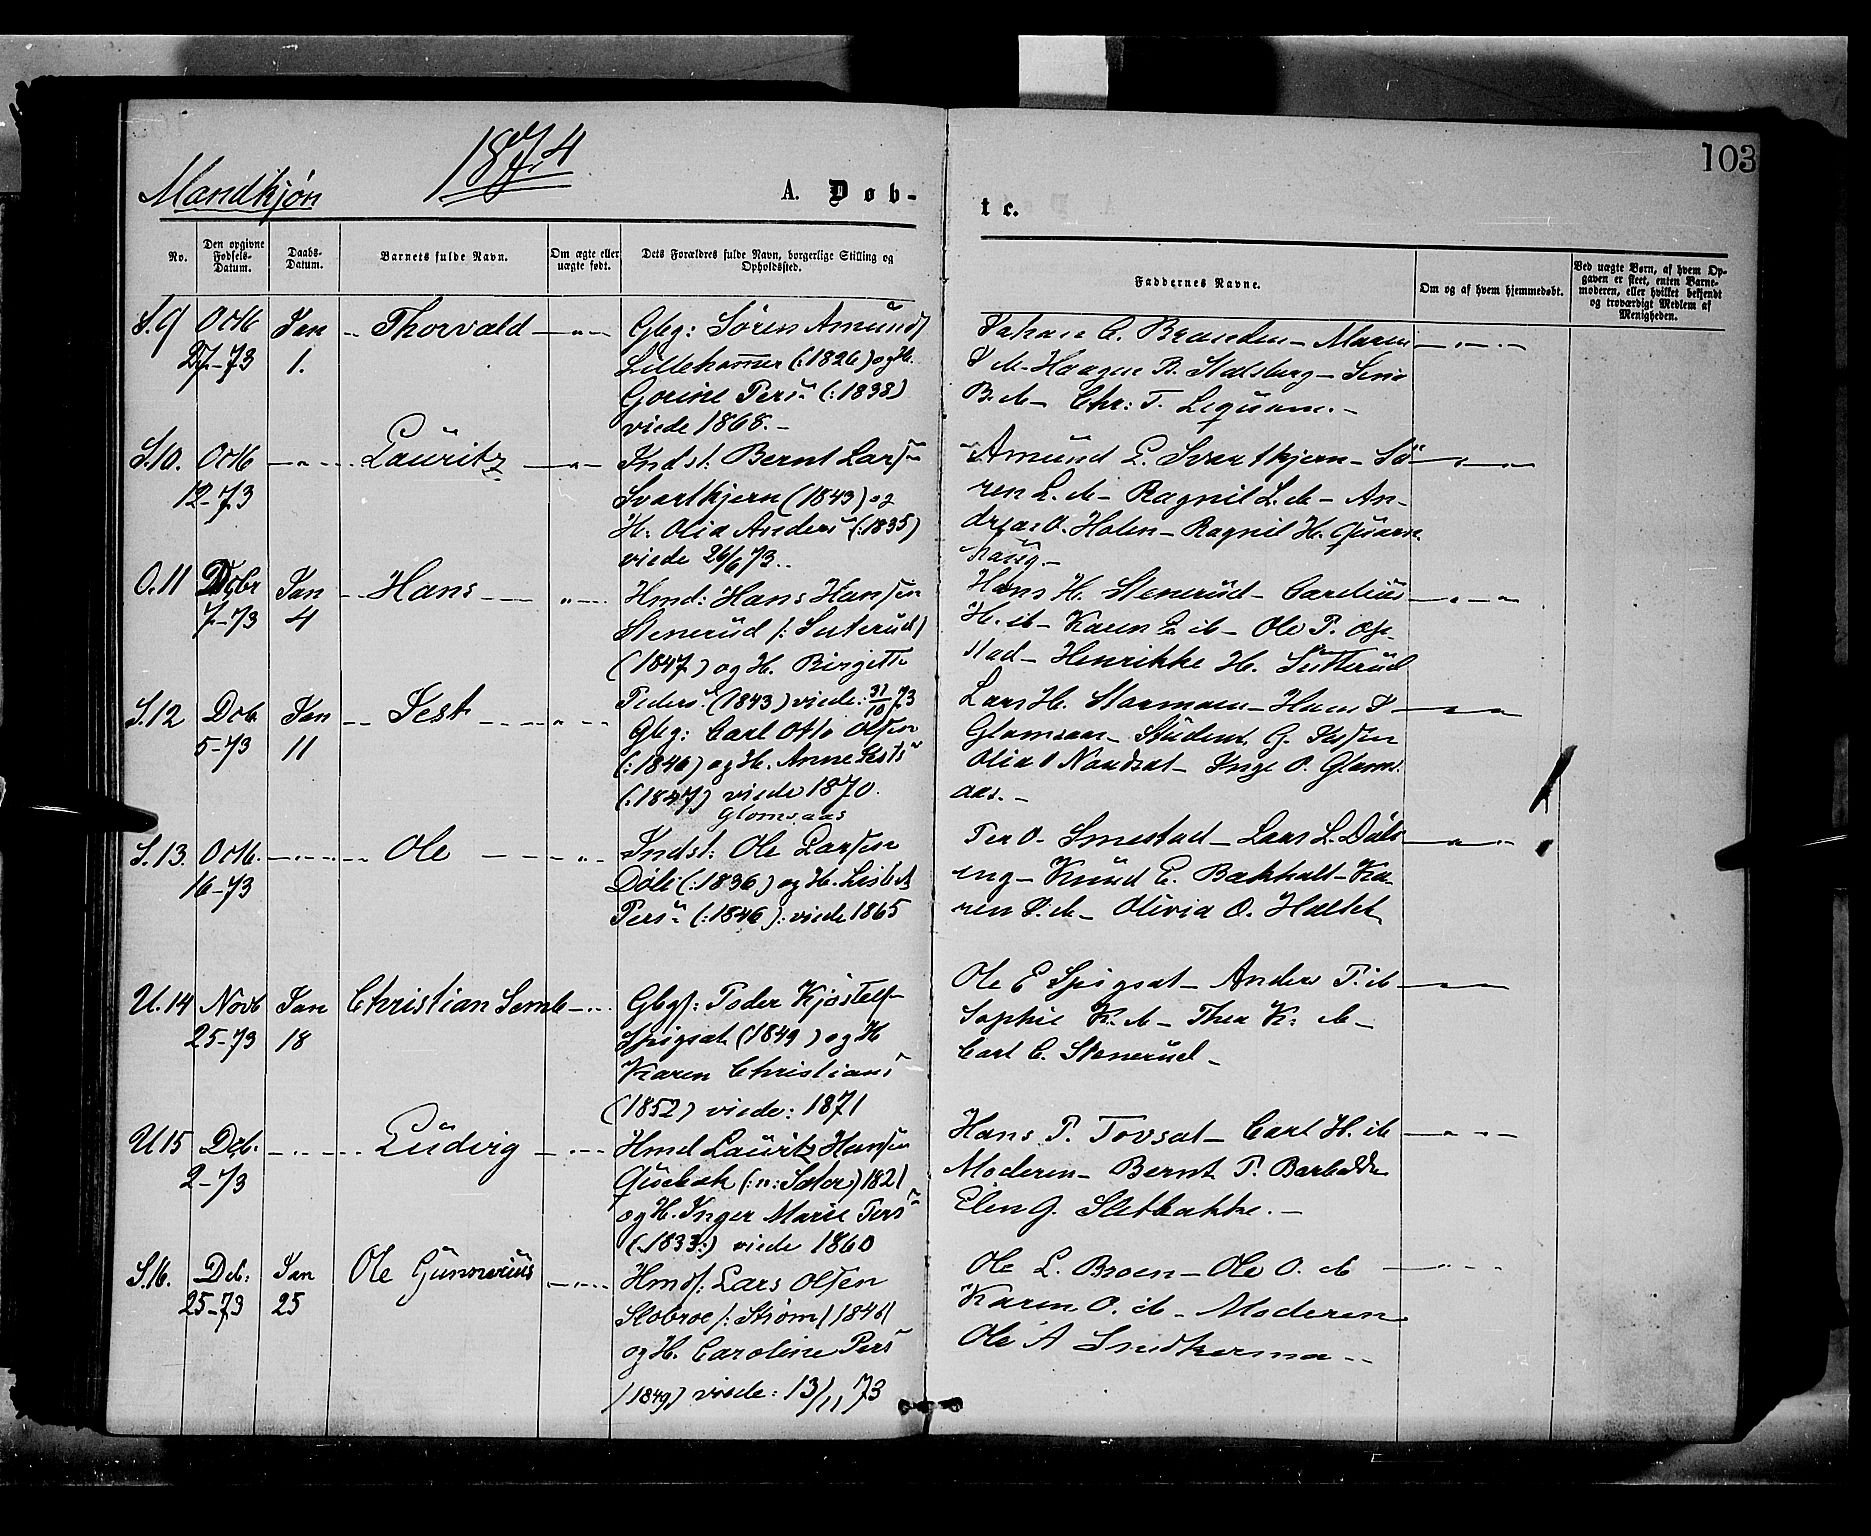 1874
103
Mandkjøn
A. Døb-
te.
No.
Den opgivne Fødsels-Datum.
Daabs-Datum.
Barnets fulde Navn.
Om ægte eller uægte født.
Dets Forældres fulde Navn, borgerlige Stilling og Opholdssted.
Faddernes Navne.
Om og af hvem hjemmedøbt.
Ved uægte Børn, af hvem Opgaven er skeet, enten Barnemoderen, eller hvilket bekjendt og troværdigt Medlem af Menigheden.
S.9 Octb 27-73 Jan 1. Thorvald
Gbg: Søren Amunds
Lillehammer (:1826) og H.
Gorine Pers. (:1838)
viede 1868.-
Johan C. Brænden - Maren
Haagen B. Stalsberg -
B. ib - Chr: T.
S.10. Octb 12-73 Lauritz
Indst: Bernt Larsen
Svartkjern (1843) og
H. Olia Anders (:1835)
viede 26/6 73..
Amund L. Svartkjern - Sø-
ren L. ib - Ragnil L. ib - An-
dreas O. Holen - Ragnil H. Quern
haug.-
O.11 Dcbr 7-73 Jan 4 Hans
Hmd: Hans Hansen
Stenerud /: Seterud/
(1847) og H. Birgitte
Peders. (1843) viede: 31/10 73
Hans H. Stenerud - Carelius
H. ib - Karen L. ib - Ole P. Op-
stad - Henrikke H. Sutterud
S.12 Dcb. 5-73 Jan 11 Jest
Gbg: Carl Otto Olsen
(:1846) og H. Anne Jests
(:1847) viede 1870.
Glomsaas
Lars H. Mosmoen - Hans
Glomsaas - Student G.
Olia O Nordsæt - Inge O. Glom-
aas.-
S.13. Octb. 16-73 Ole
Indst: Ole Larsen
Døli (:1836) og H. Lisbet
Pers. (:1846): viede 1865
Per O. Smestad - Lars L. Døli
eng - Knud E. Bækholt - Ka-
ren ib - Olivia O. Holtet
U.14 Novb 25-73 Jan 18 Christian Semb
Gbgs: Peder Kjøstels
Spigset (1849) og H
Karen Christians
(1852) viede: 1871
Ole E Spigset - Anders P. ib
Sophie K. ib - Thea K: ib -
Carl C. Stenerud -
U15 Dcb. 2-73 Ludvig
Hmd Lauritz Hansen
Qusebæk (:n: Sæter) 1821
og H. Inger Marie Pers
(:1833:) viede 1860
Hans P. Tovsæt - Carl H. ib
Moderen - Bernt P.
Elen G. Sletbakke.-
S.16. Dcb: 25-73 Jan 25 Ole Gunnerius
Hmds: Lars Olsen
Slobroe /: Strøm/ /1846/
og H. Caroline Pers
/1849/ viede: 13/11 73
Ole L. Broen - Ole O. ib
Karen O. ib - Moderen
Ole A